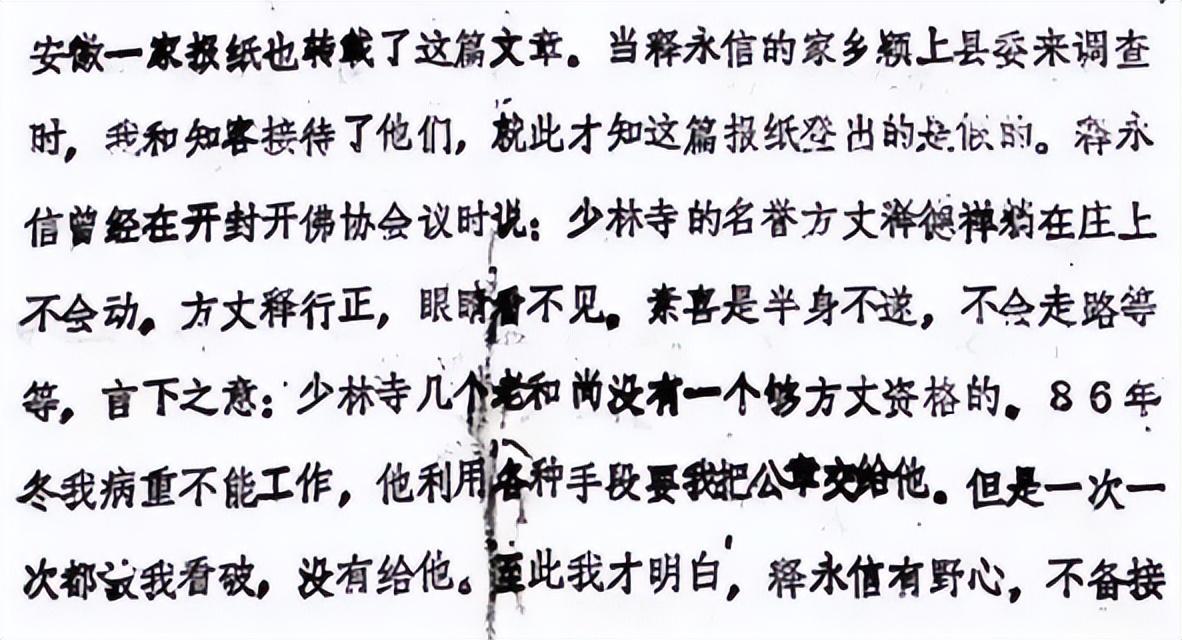 安徽一家报纸也转载了这篇文章。当释永信的家乡颍上县委来调查
时，我和知客接待了他们，就此才知这篇报纸登出的是假的。释永
信曾经在开封开佛协会议时说：少林寺的名誉方丈释德禅躺在庄上
不会动。方丈释行正，眼睛看不见。素喜是半身不遂，不会走路等
等，言下之意：少林寺几个老和尚没有一个够方丈资格的。86年
冬我病重不能工作，他利用各种手段要我把公章交给他。但是一次一
次都被我看破，没有给他。至此我才明白，释永信有野心，不备接